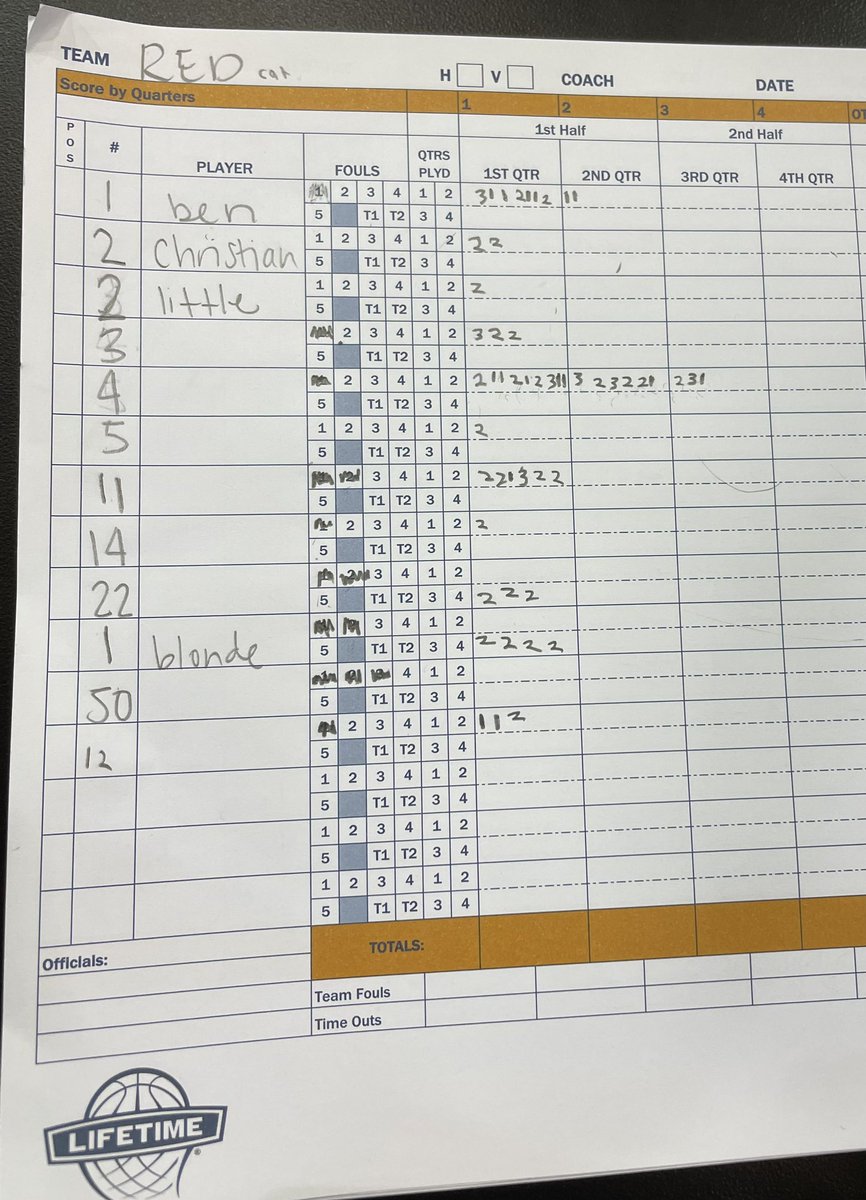 TEAM RED cat H V COACH DATE
Score by Quarters 1 2 3 4 OT
1st Half 2nd Half
POS # PLAYER FOULS QTRS PLYD 1ST QTR 2ND QTR 3RD QTR 4TH QTR
1 ben 2 3 4 1 2 3112112 11
5 T1 T2 3 4
2 Christian 1 2 3 4 1 2 22
5 T1 T2 3 4
2 little 1 2 3 4 1 2 2
5 T1 T2 3 4
3 2 3 4 1 2 322
5 T1 T2 3 4
4 2 3 4 1 2 211212311 3 23221 231
5 T1 T2 3 4
5 1 2 3 4 1 2 2
5 T1 T2 3 4
11 3 4 1 2 221322
5 T1 T2 3 4
14 2 3 4 1 2 2
5 T1 T2 3 4
22 3 4 1 2
5 T1 T2 3 4 222
1 blonde 3 4 1 2
5 T1 T2 3 4 2222
50 4 1 2
5 T1 T2 3 4
12 2 3 4 1 2 112
5 T1 T2 3 4
1 2 3 4 1 2
5 T1 T2 3 4
1 2 3 4 1 2
5 T1 T2 3 4
1 2 3 4 1 2
5 T1 T2 3 4
Officials: TOTALS:
Team Fouls
Time Outs
LIFETIME®